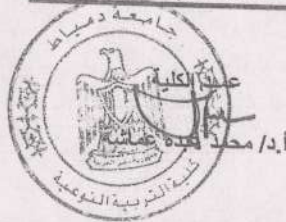 جامعة دمياط
عميد الكلية
أ.د/ محمد عبده عماشة
كلية التربية النوعية